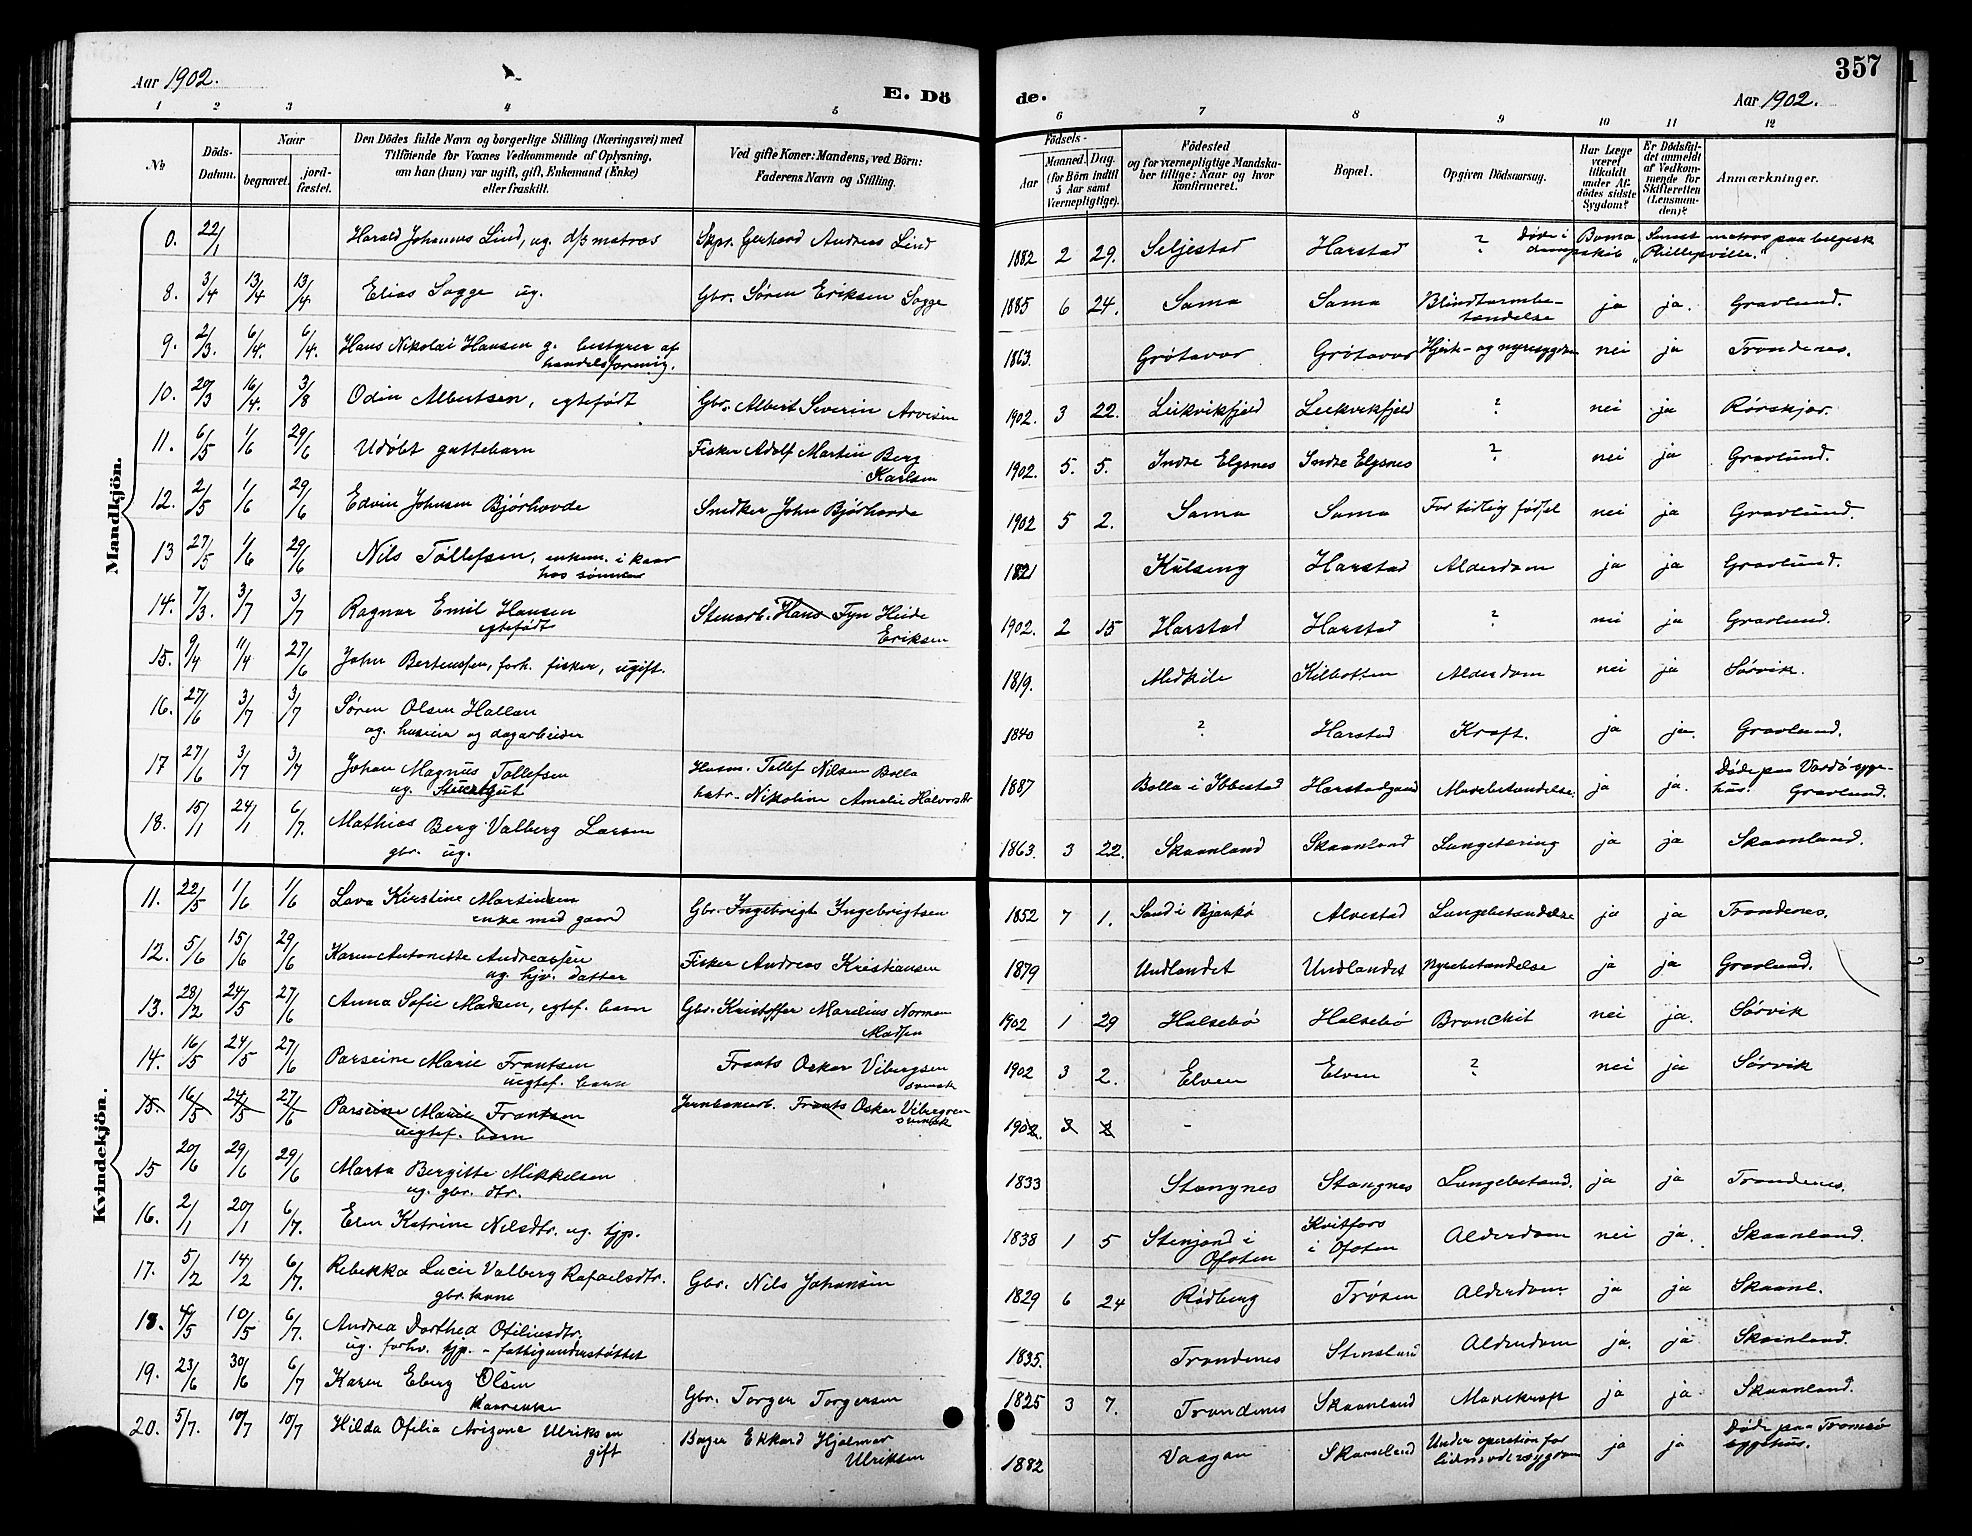 357
Aar 1902.
E. Dö
de.
Aar 1902.
1 2 3 4 5 6 7 8 9 10 11 12
No
Döds-Datum.
Naar
begravet.
jord-fæstet.
Den Dödes fulde Navn og borgerlige Stilling (Næringsvei) med
Tilföiende for Voxnes Vedkommende af Oplysning,
om han (hun) var ugift, gift, Enkemand (Enke)
eller fraskilt.
Ved gifte Koner: Mandens, ved Börn:
Faderens Navn og Stilling.
Födsels-
Aar
Maaned. Dag.
(for Börn indtil
5 Aar samt
Værnepligtige).
Födested
og for værnepligtige Mandska-
ber tillige: Naar og hvor
konfirmeret.
Bopæl.
Opgiven Dödsaarsag.
Har Læge
været
tilkaldt
under Af-
dödes sidste
Sygdom?
Er Dödsfal-
det anmeldt
af Vedkom-
mende for
Skifteretten
(Lensman-
den)?
Anmærkninger.
Mandkjön.
0. 22/1 Harald Johannes Lind, ug. d/s matros Skpr. Gerhard Andreas Lind 1882 2 29. Seljestad Harstad ? Døde i Boma Smst matros paa belgisk
dampskib "Phillipville."
8. 3/4 13/4 13/4 Elias Sagge ug. Gbr. Søren Eriksen Sagge 1885 6 24. Sama Sama Blindtarmbe-
tændelse ja ja. Gravlund.
9. 2/3. 6/4. 6/4. Hans Nikolai Hansen g. bestyrer af
handelsforening. 1863. Grøtavær Grøtavær Hjerte- og nyresygdom nei ja Trondenes.
10. 20/3 16/4. 3/8 Odin Albertsen, egtefødt Gbr. Albert Severin Arvesen 1902. 3 22. Leikvikfjeld Leikvikfjeld ? nei ja Rørskjær.
11. 6/5 1/6 29/6 Udøbt guttebarn Fisker Adolf Martin Berg
Karlsen 1902. 5. 5. Indre Elgsnes Indre Elgsnes ? nei ja Gravlund.
12. 2/5 1/6 29/6 Edvin Johnsen Bjørhovde Snedker John Bjørhovde 1902 5 2. Sama Sama For tidlig fødsel nei ja Gravlund.
13 27/5 1/6 29/6 Nils Tollefsen, enkem. i kaar
hos sønnen 1821 Kulseng Harstad Alderdom ja ja Gravlund.
14. 7/3. 3/7 3/7 Ragnar Emil Hansen
egtefødt Stenarb. Hans Fyn Heide
Eriksen 1902. 2 15 Harstad Harstad ? nei ja Gravlund.
15. 9/4 11/4 27/6 John Bertenssen, forh. fisker, ugift. 1819. Medkile Kilbotten Alderdom nei ja Sørvik.
16. 27/6 3/7 3/7 Søren Olsen Hallan
ug. huseier og dagarbeider 1840 ? Harstad Kræft. ja ja. Gravlund.
17 27/6 3/7 3/7 Johan Magnus Tollefsen
ug. Stuertgut Husm. Tollef Nilsen Bolla
hstr. Nikoline Amalie Halvorsdtr 1887 Bolla i Ibbestad Harstadgaard Mavebetændelse. ja ja. Døde paa Vardö syge-
hus. Gravlund.
18. 15/1 24/1 6/7. Mathias Berg Valberg Larsen
gbr. ug. 1863. 3 22. Skaanland Skaanland Lungetæring ja ja Skaanland.
Kvindekjön.
11. 22/5 1/6 1/6 Lava Kirstine Martinsen
enke med gaard Gbr. Ingebrigt Ingebrigtsen 1852 7 1. Sand i Bjarkö Alvestad Lungebetændelse ja ja Trondenes.
12. 5/6 15/6 29/6 Karen Antonette Andreassen
ug. hjv. datter Fisker Andreas Kristiansen 1879 Undlandet Undlandet Nyrebetændelse ja ja Gravlund.
13. 28/2 24/5 27/6 Anna Sofie Madsen, egtef. barn Gbr. Kristoffer Marelius Norman
Madsen 1902 1 29 Halsebö Halsebö Bronchit nei ja. Sørvik
14. 16/5 24/5 27/6 Parseine Marie Frantsen
uegtef. barn Frants Oskar Vibergsen
svensk 1902 3 2. Elven Elven ? nei ja Sørvik
15 16/5 24/5 27/6 Parseine Marie Frantsen
uegtef. barn Jernbanearb. Frants Oskar Vibergren
svensk 1902. 3 2 -
15 20/6 29/6 29/6 Marta Bergitte Mikkelsen
ug. gbr. dtr. 1833 Stangnes Stangnes Lungebetænd. ja ja Trondenes.
16. 2/1 20/1 6/7. Elen Katrine Nilsdtr. ug. tjp. 1838 1 5 Stenjord i
Ofoten Kvitfors
i Ofoten Alderdom nei ja. Skaanland.
17. 5/2 14/2 6/7. Rebekka Lucie Valberg Rafaelsdtr.
gbr. kone Gbr. Nils Johansen 1829 6 24 Rødberg Trøsen Alderdom ja ja Skaanl.
18. 4/5 10/5 6/7. Andrea Dorthea Ofeliusdtr.
ug. forhv. tjp. - fattigunderstøttet 1835. Trondenes Stensland Alderdom ja. ja Skaanland.
19. 23/6 30/6 6/7 Karen Eberg Olsen
Kaarenke Gbr. Torger Torgersen 1825 3 7. Trondenes Skaanland Mavekræft ja ja Skaanland.
20. 5/7. 10/7 10/7 Hilda Ofelia Arizone Ulriksen
gift Bager Ekkard Hjalmar
Ulriksen 1882 Vaagan Skaanland Under operation for
ja ja Døde paa Tromsø
sygehus.